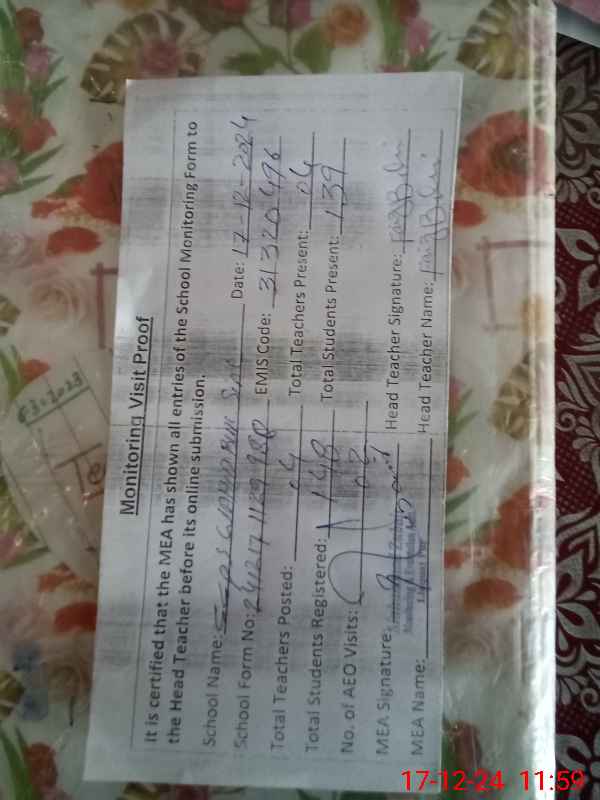 Monitoring Visit Proof
It is certified that the MEA has shown all entries of the School Monitoring Form to
the Head Teacher before its online submission.
School Name: Date: 17-12-2024
School Form No: EMIS Code: 31320496
Total Teachers Posted: 04 Total Teachers Present: 04
Total Students Registered: 148 Total Students Present: 139
No. of AEO Visits: 02
MEA Signature: Head Teacher Signature:
MEA Name: Head Teacher Name:
03-2-23
17-12-24 11:59